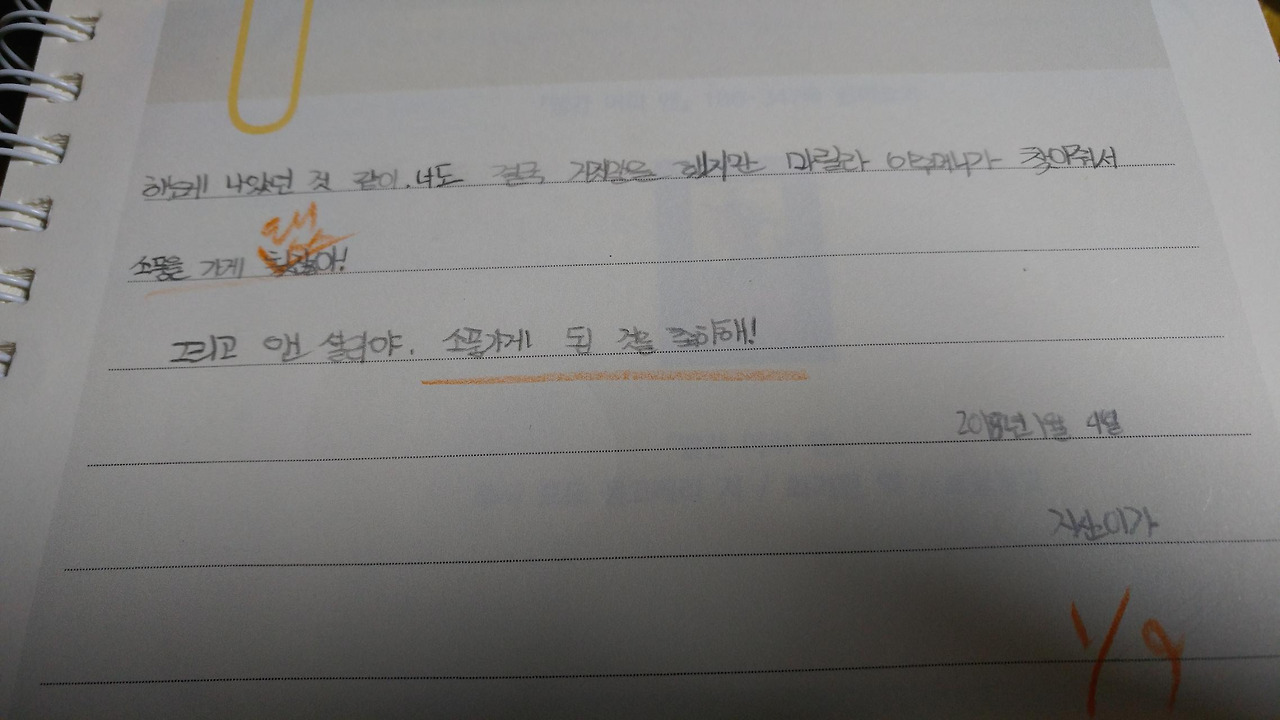 하는게 나았던 것 같아. 너도 결국 거짓말을 했지만 마릴라 아주머니가 찾아줘서
됐
소풍을 가게 잖아!
그리고 앤 셜리야. 소풍가게 된 것을 축하해!
2018년 1월 4일
지산이가
1/9